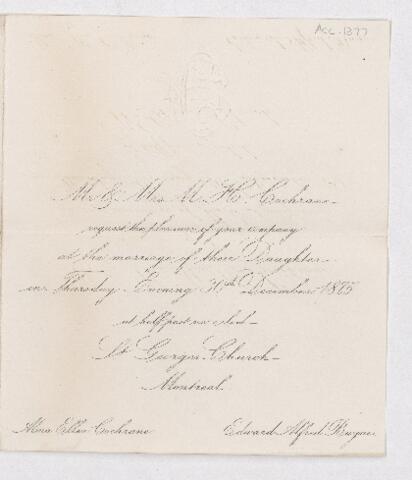 Acc-1377
Mr & Mrs M. H. Cochrane
request the pleasure of your company
at the marriage of their Daughter
on Thursday Evening 30th December 1875
at half past o'clock
St Georges Church
Montreal
Alma Ellen Cochrane Edward Alfred